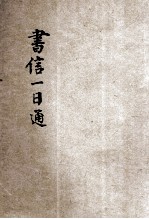 書信一日通